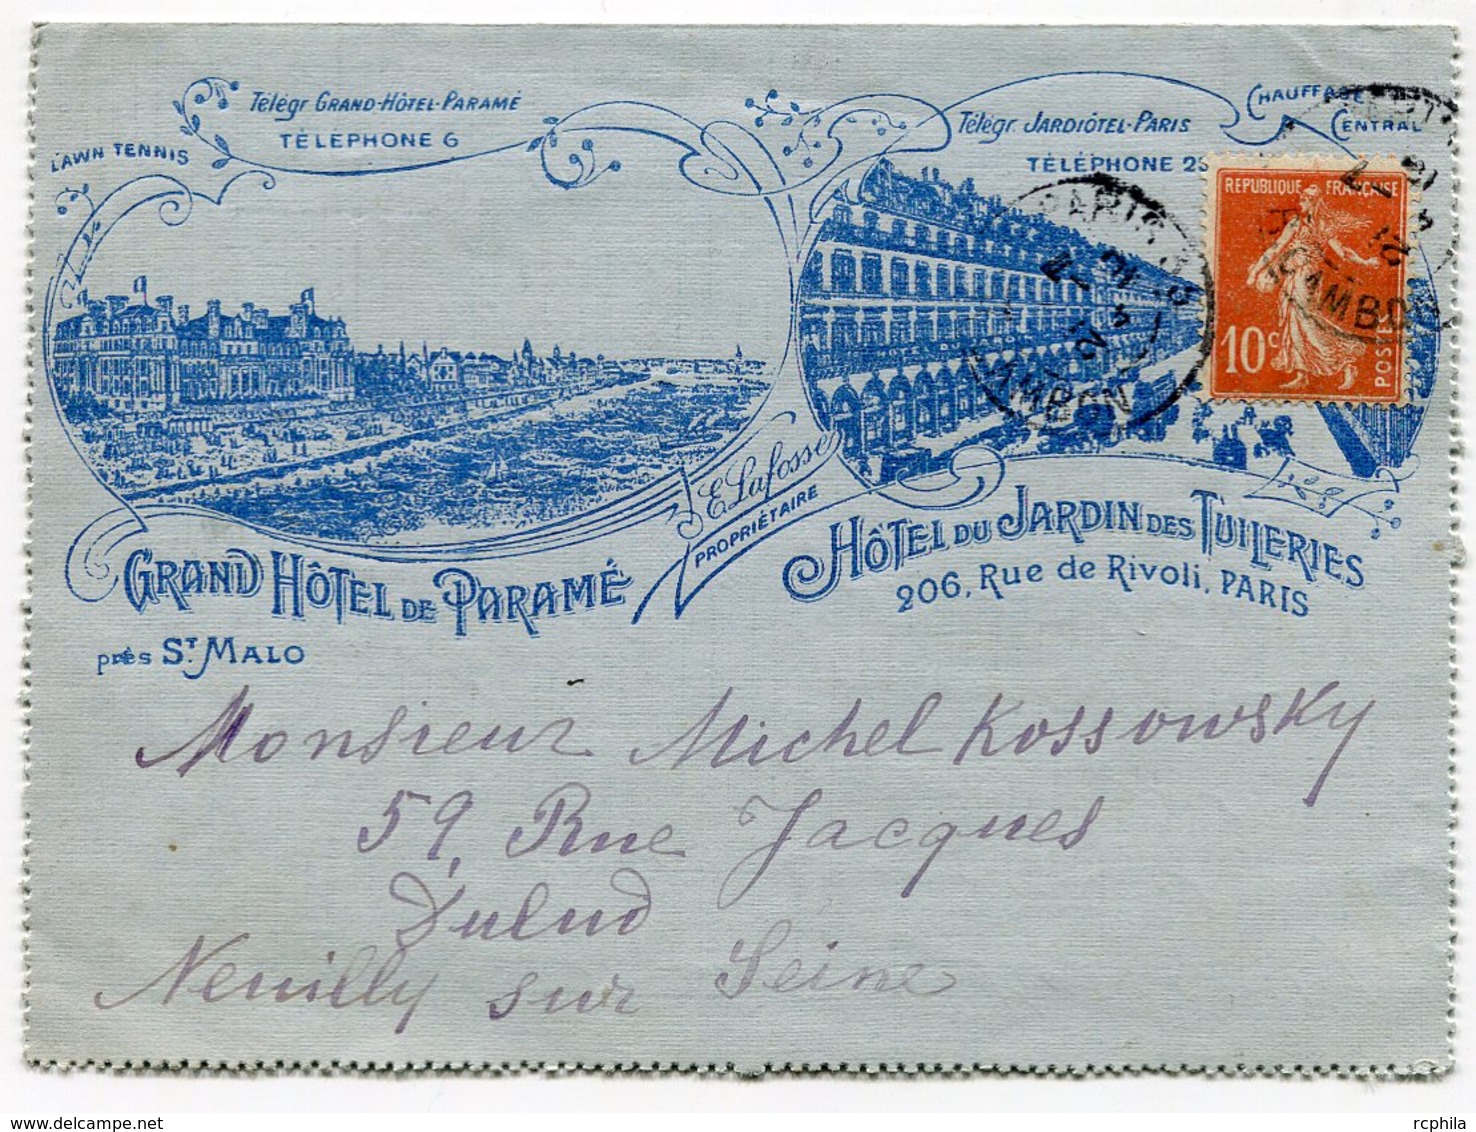 Télégr GRAND-HÔTEL-PARAMÉ
TÉLÉPHONE 6
LAWN TENNIS
Télégr. JARDIÔTEL-PARIS
TÉLÉPHONE 2
CHAUFFAGE
CENTRAL
REPUBLIQUE FRANÇAISE
10c
POSTES
PARIS
CAMBON
E. Lafosse
PROPRIÉTAIRE
GRAND HÔTEL DE PARAMÉ
près ST MALO
HÔTEL DU JARDIN DES TUILERIES
206, Rue de Rivoli, PARIS
Monsieur Michel Kossowsky
59, Rue Jacques
Dulud
Neuilly sur Seine
delcampe.net
rcphila